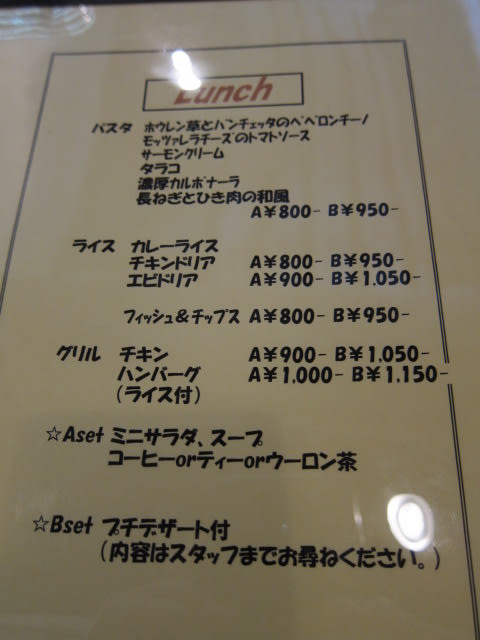 Lunch
パスタ ホウレン草とパンチェッタのペペロンチーノ
モッツァレラチーズのトマトソース
サーモンクリーム
タラコ
濃厚カルボナーラ
長ねぎとひき肉の和風
A¥800- B¥950-
ライス カレーライス
チキンドリア A¥800- B¥950-
エビドリア A¥900- B¥1,050-
フィッシュ&チップス A¥800- B¥950-
グリル チキン A¥900- B¥1,050-
ハンバーグ A¥1,000- B¥1,150-
(ライス付)
☆Aset ミニサラダ、スープ
コーヒーorティーorウーロン茶
☆Bset プチデザート付
(内容はスタッフまでお尋ねください。)